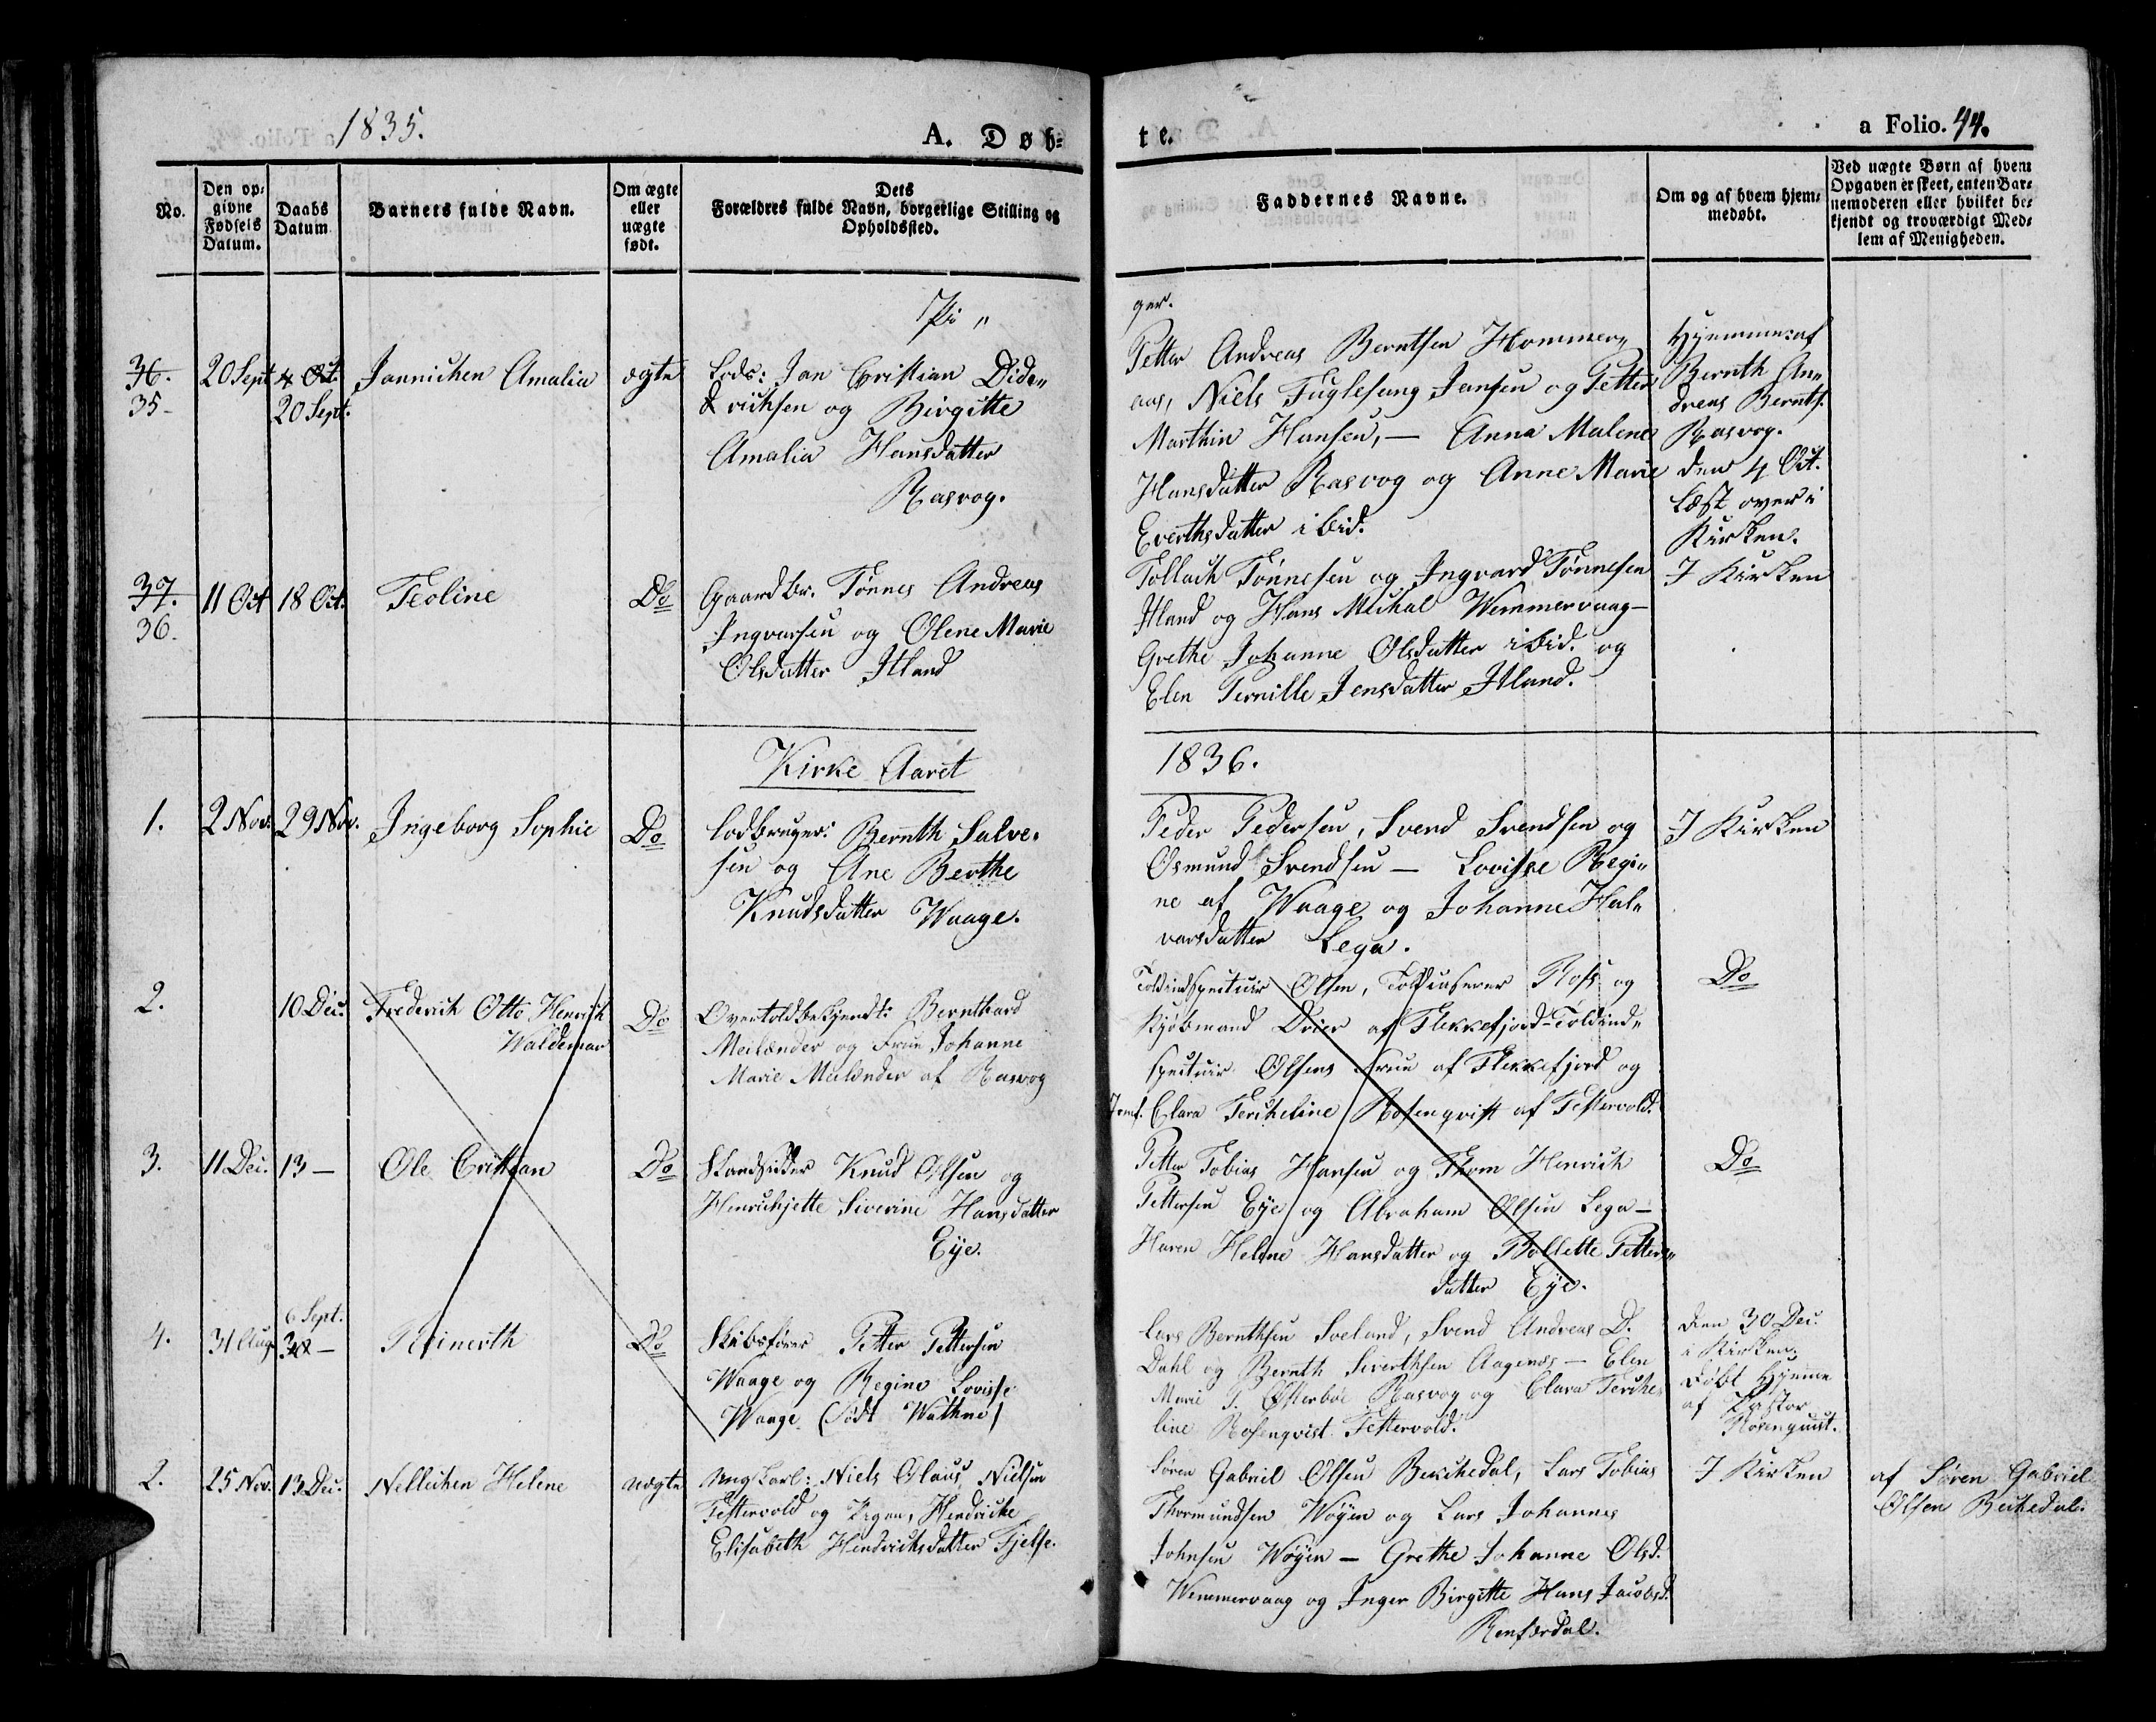 1835.
A. Døb-
te.
a Folio. 44.
No.
Den op-
givne
Fødsels
Datum.
Daabs
Datum
Barnets fulde Navn.
Om ægte
eller
uægte
født.
Dets
Forældres fulde Navn, borgerlige Stilling og
Opholdssted.
Faddernes Navne.
Om og af hvem hjem-
medøbt.
Ved uægte Børn af hvem
Opgaven er skeet, enten Bar-
nemoderen eller hvilket be-
kjendt og troværdigt Med-
lem af Menigheden.
Pi„
ger.
36.
35-
20 Sept.
4 Oct.
20 Sept.
Jannichen Amalia
ægte
Lods: Jan Cristian Dide„
richsen og Birgitte
Amalia Hansdatter
Rasvog.
Petter Andreas Berntsen Hommer„
aas, Niels Fuglesang Jansen og Petter
Marthin Hansen, — Anna Malene
Hansdatter Rasvog og Anne Marie
Everthsdatter ibid.
Hjemme: af
Bernth An„
dreas Bernts.
Rasvog.
den 4 Oct.
læst over i
Kirken.
37.
36.
11 Oct
18 Oct.
Teoline
Do
Gaardbr. Tønnes Andreas
Ingvarsen og Olene Marie
Olsdatter Itland
Tollach Tønnesen og Ingvard Tønnesen
Itland og Hans Michal Wemmervaag—
Grethe Johanne Olsdatter ibid. og
Elen Pernille Jensdatter Itland.
I Kirken
Kirke Aaret
1836.
1.
2 Nov.
29 Nov.
Ingeborg Sophie
Do
Lodbruger: Bernth Salve-
sen og Ane Berthe
Knudsdatter Waage.
Peder Pedersen, Svend Svendsen og
Osmund Svendsen — Lovisse Regi„
ne af Waage og Johanne Hal„
varsdatter Lega.
I Kirken
2.
10 Dec.
Frederich Otto Henrich
Waldemar
Do
Overtoldbetjent: Bernthard
Meilænder og Frue Johanne
Marie Meilænder af Rasvog
Toldinspecteur Olsen, Toldcasserer Ross og
Kjøbmand Dreier af Flekkefjord-Toldind„
specteur Olsens Frue af Flekkefjord og
Jomf. Clara Tercheline Rosenqvist af Festervold.
Do
3.
11 Dec.
13 —
Ole Cristian
Do
Strandsidder Knud Olsen og
Henrichjette Siverine Hansdatter
Eye.
Petter Tobias Hansen og Thom Henrich
Pettersen Eye og Abraham Olsen Lega—
Karen Helene Hansdatter og Bollette Petters„
datter Eye.
Do
4.
31 Aug.
6 Sept.
30 —
Reinerth
Do
Skibsfører Petter Pettersen
Waage og Regine Lovisse
Waage (født Wathne)
Lars Bernthsen Sveland, Svend Andreas D.
Dahl og Bernth Siverthsen Aagenæs — Elen
Marie P. Østerboe Rasvog og Clara Terche-
line Rosenqvist Festervold.
den 30 Dec.
i Kirken.
døbt Hjemme
af Pastor
Rosenquist.
2.
25 Nov.
13 Dec.
Nellichen Helene
uægte
Ungkarl: Niels Olaus Nielsen
Festervold og Pigen, Hendricke
Elisabeth Hendrichsdatter Fjelse.
Søren Gabriel Olsen Beckedal, Lars Tobias
Thormundsen Wøyen og Lars Johannes
Johnsen Wøyen — Grethe Johanne Olsd.
Wemmervaag og Inger Birgitte Hans Jacobsd.
Renfærdal.
I Kirken
af Søren Gabriel
Olsen Beckedal.